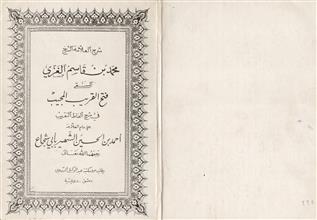 شرح العلامة الشيخ
محمد بن قاسم الغزي
المسمى
فتح القريب المجيب
في شرح ألفاظ التقريب
على متن العلامة
أحمد بن الحسين الشهير بأبي شجاع
رحمهما الله تعالى